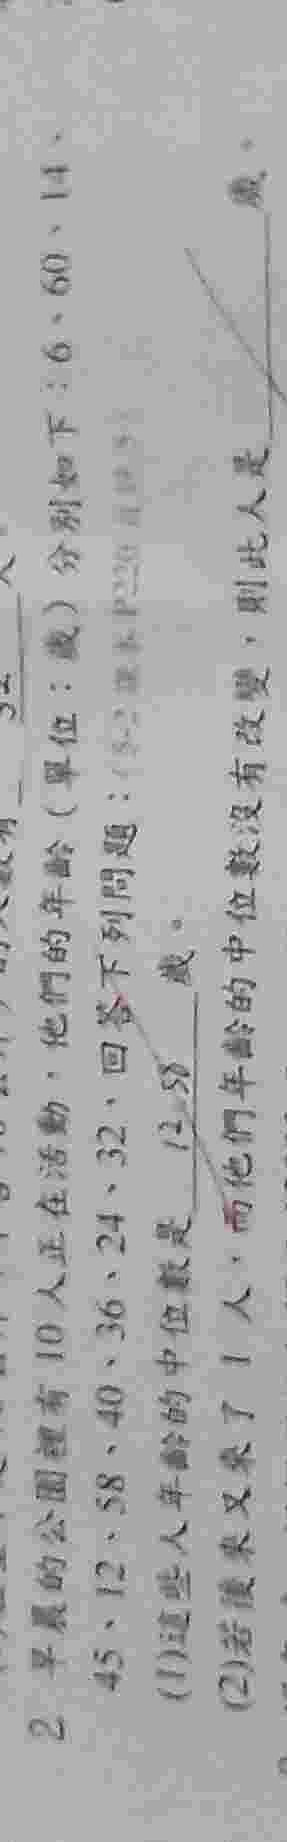 32 人
2 早晨的公園裡有 10 人正在活動，他們的年齡（單位：歲）分別如下：6、60、14、
45、12、58、40、36、24、32，回答下列問題：(5-2 課本 P220
(1)這些人年齡的中位數是 12.58 歲。
(2)若後來又來了 1 人，而他們年齡的中位數沒有改變，則此人是 歲。